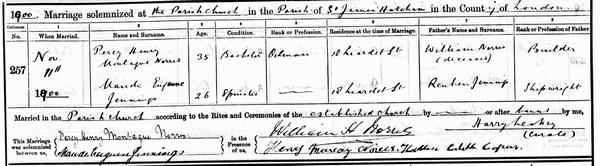 1900. Marriage solemnized at the Parish Church in the Parish of St James Hatcham in the County of London
Columns. 1 2 3 4 5 6 7 8
No. When Married. Name and Surname. Age. Condition. Rank or Profession. Residence at the time of Marriage. Father's Name and Surname. Rank or Profession of Father.
257 Nov 11th 1900
Percy Henry Montague Norris 35 Bachelor Oilman 18 Liardet St William Norris (deceased) Builder
Maude Eugenie Jennings 26 Spinster — 18 Liardet St Reuben Jennings Shipwright
Married in the Parish Church according to the Rites and Ceremonies of the established church by — or after banns by me,
Harry (Curate)
This Marriage was solemnized between us, Percy Henry Montague Norris
Maude Eugenie Jennings
in the Presence of us, William H Norris
Henry Murray